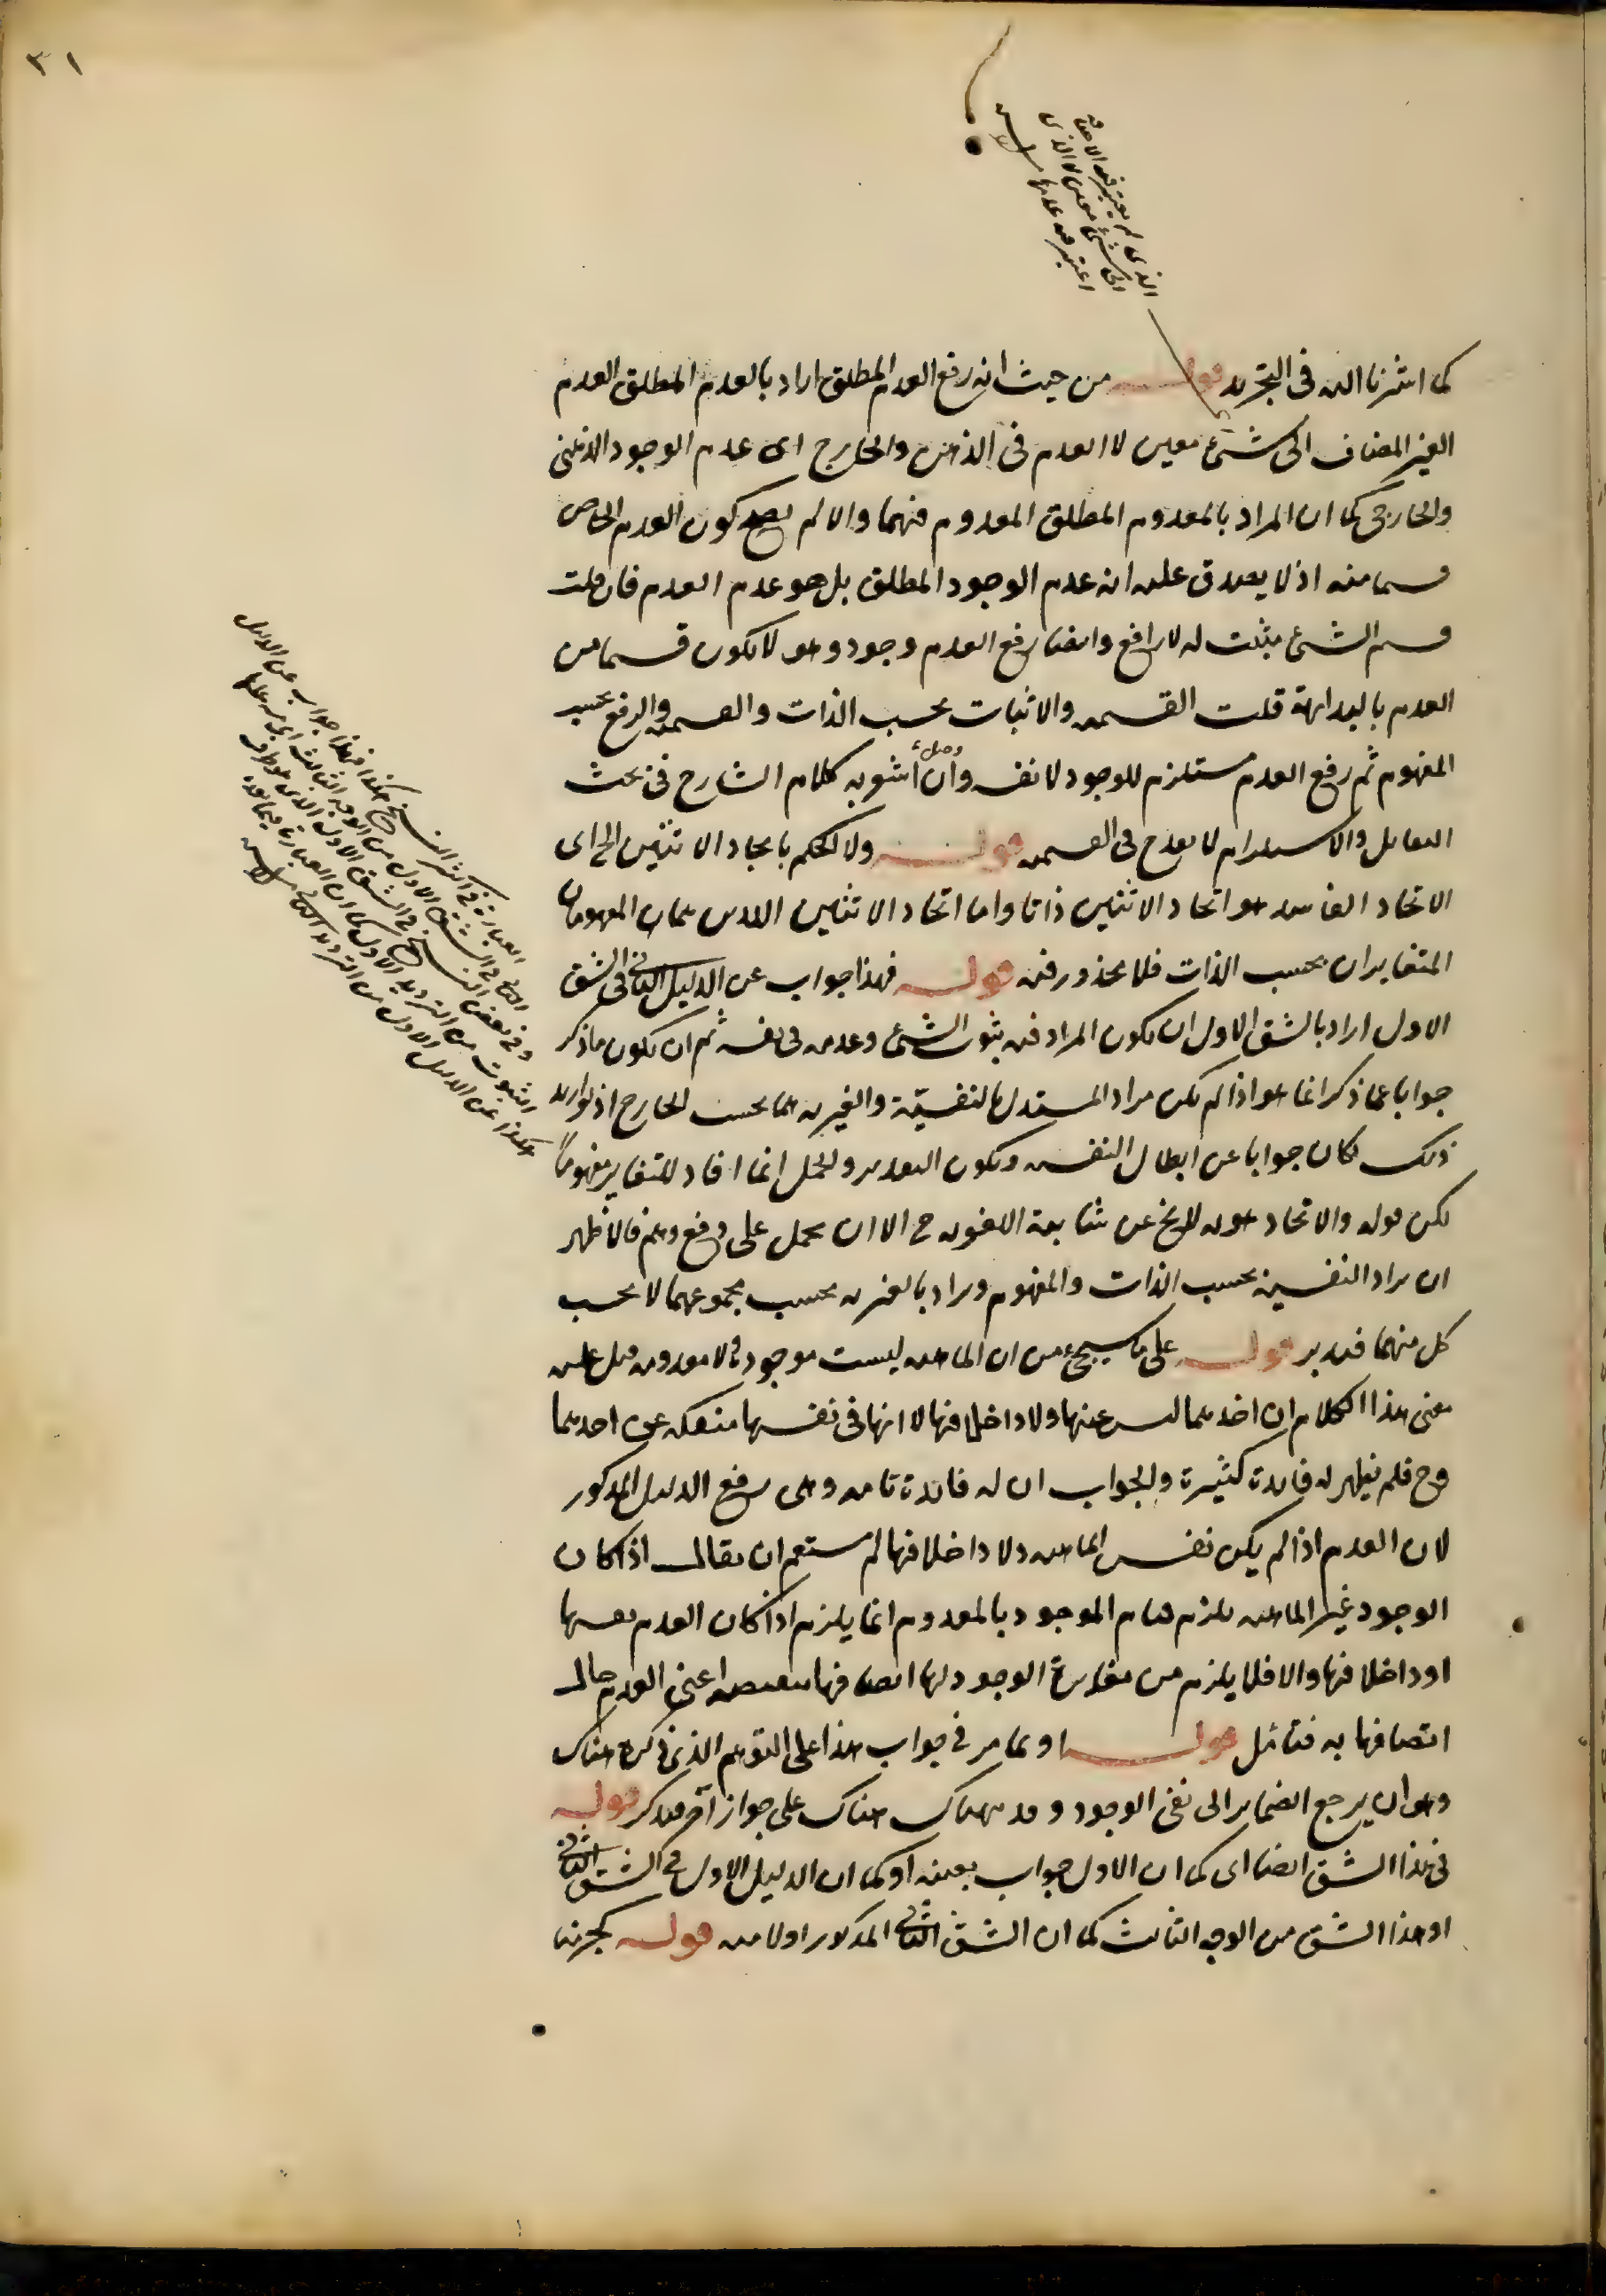 ٣١
الذى لم يعتبر فيه الاضافة
الى شئ معين لا الذى
اعتبر فيه عدمها
كما اشرنا اليه فى التجريد قوله من حيث انه رفع العدم المطلق اراد بالعدم المطلق العدم
الغير المضاف الى شئ معين لا العدم فى الذهن والخارج اى عدم الوجود الذهنى
والخارجى كما ان المراد بالمعدوم المطلق المعدوم فيهما والا لم يصح كون العدم الخاص
قسما منه اذ لا يصدق عليه انه عدم الوجود المطلق بل هو عدم العدم فان قلت
قسم الشئ مثبت له لا رافع وايضا رفع العدم وجود وهو لا يكون قسما من
العدم بالبداهة قلت القسمية والاثبات بحسب الذات والقسمية والرفع بحسب
المفهوم ثم رفع العدم مستلزم للوجود لا نفسه وان اشعر به كلام الشارح فى بحث
التقابل والاستلزام لا يقدح فى القسمية قوله ولا الحكم باتحاد الاثنين الخ اى
الاتحاد الفاسد هو اتحاد الاثنين ذاتا واما اتحاد الاثنين اللذين هما المفهومان
المتغايران بحسب الذات فلا محذور فيه قوله فهذا جواب عن الدليل الثانى فى الشق
الاول اراد بالشق الاول ان يكون المراد فيه ثبوت الشئ وعدمه فى نفسه ثم ان يكون ما ذكر
جوابا عما ذكر انما هو اذا لم يكن مراد المستدل بالنفسية والغيرية هما بحسب الخارج اذ لو اريد
ذلك لكان جوابا عن ابطال النفسية ويكون التقدير والحمل انما افاد للتغاير مفهوما
لكن قوله والاتحاد هوية لا يخ عن شائبة اللغوية ح الا ان يحمل على دفع وهم فالاظهر
ان يراد النفسية بحسب الذات والمفهوم ويراد بالغيرية بحسب مجموعهما لا بحسب
كل منهما فتدبر قوله على ما سيجئ من ان الماهية ليست موجودة ولا معدومة قيل عليه
معنى هذا الكلام ان احدهما ليس عينها ولا داخلا فيها لا انها فى نفسها منفكة عن احدهما
وح فلم يظهر له فائدة كثيرة والجواب ان له فائدة تامة وهى رفع الدليل المذكور
لان العدم اذا لم يكن نفس الماهية ولا داخلا فيها لم يستقم ان يقال اذا كان
الوجود غير الماهية يلزم قيام الموجود بالمعدوم انما يلزم اذا كان العدم نفسها
او داخلا فيها والا فلا يلزم من مغايرة الوجود لها اتصافها بنقيضه اعنى العدم حال
اتصافها به فتأمل قوله او بما مر فى جواب هذا على التوهم الذى ذكره هناك
وهو ان يرجع الضمائر الى نفى الوجود وقد نبهناك هناك على جواز آخر فتذكر قوله
فى هذا الشق ايضا اى كما ان الاول جواب بعينه او كما ان الدليل الاول فى الشق الثانى
او هذا الشق من الوجه الثالث كما ان الشق الثانى المذكور اولا منه قوله
العبارة فى اكثر النسخ هكذا فهذا جواب عن الدليل
الثانى فى الشق الاول من الوجه الثالث
وفى بعض النسخ فى الشق الاول الذى هو
الثبوت من الترديد الاول كما ان العبارة فيما بعده
هكذا عن الدليل الاول من الترديد الثانى